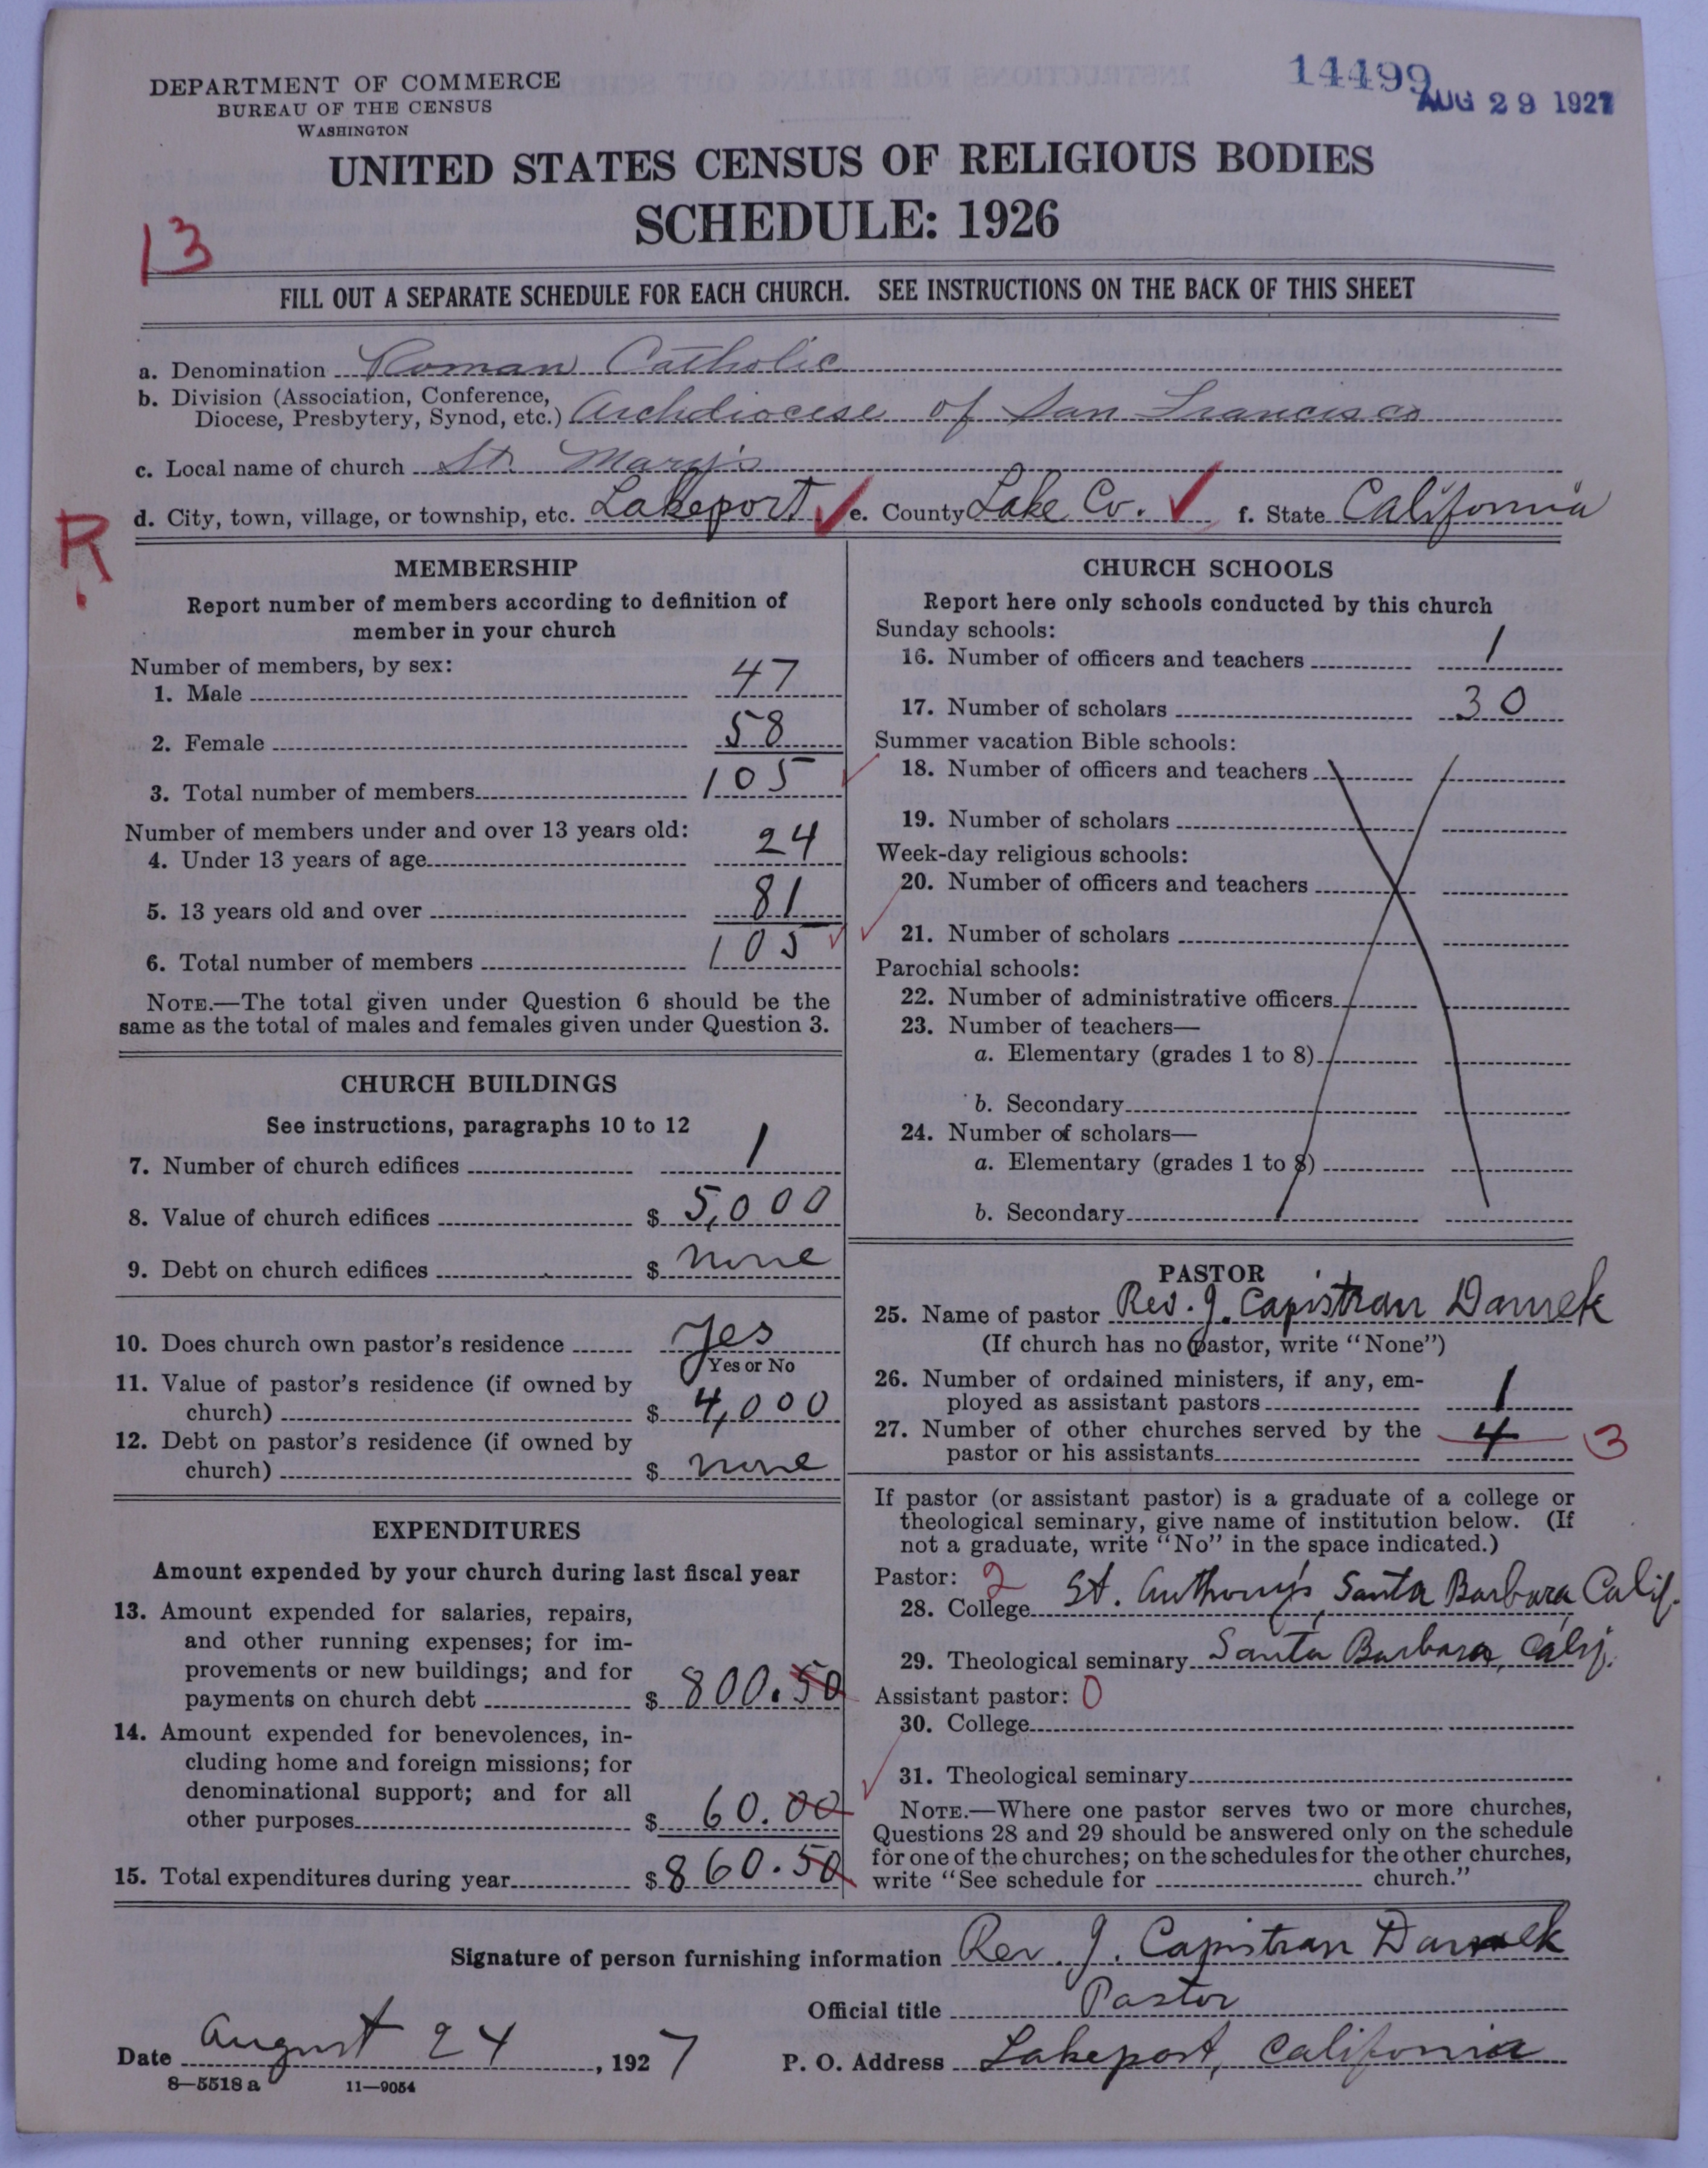 14499
AUG 29 1927
DEPARTMENT OF COMMERCE
BUREAU OF THE CENSUS
WASHINGTON
UNITED STATES CENSUS OF RELIGIOUS BODIES
SCHEDULE: 1926
13
FILL OUT A SEPARATE SCHEDULE FOR EACH CHURCH. SEE INSTRUCTIONS ON THE BACK OF THIS SHEET
a. Denominatio­n Roman Catholic
b. Division (Association, Conference,
Diocese, Presbytery, Synod, etc.) Archdiocese of San Francisco
c. Local name of church St. Mary's
d. City, town, village, or township, etc. Lakeport e. County Lake Co. f. State California
R
MEMBERSHIP
Report number of members according to definition of
member in your church
Number of members, by sex:
1. Male 47
2. Female 58
3. Total number of members 105
Number of members under and over 13 years old:
4. Under 13 years of age 24
5. 13 years old and over 81
6. Total number of members 105
NOTE.—The total given under Question 6 should be the
same as the total of males and females given under Question 3.
CHURCH BUILDINGS
See instructions, paragraphs 10 to 12
7. Number of church edifices 1
8. Value of church edifices $ 5,000
9. Debt on church edifices $ none
10. Does church own pastor's residence Yes
Yes or No
11. Value of pastor's residence (if owned by
church) $ 4,000
12. Debt on pastor's residence (if owned by
church) $ none
EXPENDITURES
Amount expended by your church during last fiscal year
13. Amount expended for salaries, repairs,
and other running expenses; for im-
provements or new buildings; and for
payments on church debt $ 800.50
14. Amount expended for benevolences, in-
cluding home and foreign missions; for
denominational support; and for all
other purposes $ 60.00
15. Total expenditures during year $ 860.50
CHURCH SCHOOLS
Report here only schools conducted by this church
Sunday schools:
16. Number of officers and teachers 1
17. Number of scholars 30
Summer vacation Bible schools:
18. Number of officers and teachers
19. Number of scholars
Week-day religious schools:
20. Number of officers and teachers
21. Number of scholars
Parochial schools:
22. Number of administrative officers
23. Number of teachers—
a. Elementary (grades 1 to 8)
b. Secondary
24. Number of scholars—
a. Elementary (grades 1 to 8)
b. Secondary
PASTOR
25. Name of pastor Rev. J. Capistran Damek
(If church has no pastor, write "None")
26. Number of ordained ministers, if any, em-
ployed as assistant pastors 1
27. Number of other churches served by the
pastor or his assistants 4 3
If pastor (or assistant pastor) is a graduate of a college or
theological seminary, give name of institution below. (If
not a graduate, write "No" in the space indicated.)
Pastor: 2
28. College St. Anthony's, Santa Barbara, Calif.
29. Theological seminary Santa Barbara, Calif.
Assistant pastor: 0
30. College
31. Theological seminary
NOTE.—Where one pastor serves two or more churches,
Questions 28 and 29 should be answered only on the schedule
for one of the churches; on the schedules for the other churches,
write "See schedule for church."
Signature of person furnishing information Rev. J. Capistran Damek
Official title Pastor
Date August 24, 1927 P. O. Address Lakeport, California
8—5518 a 11—9054